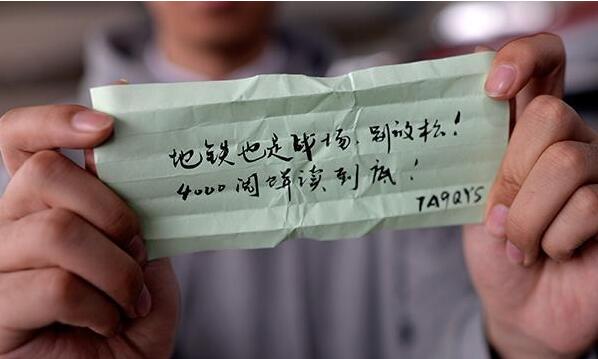 地铁也是战场,别放松!
4000 读到底!
7A9QYS